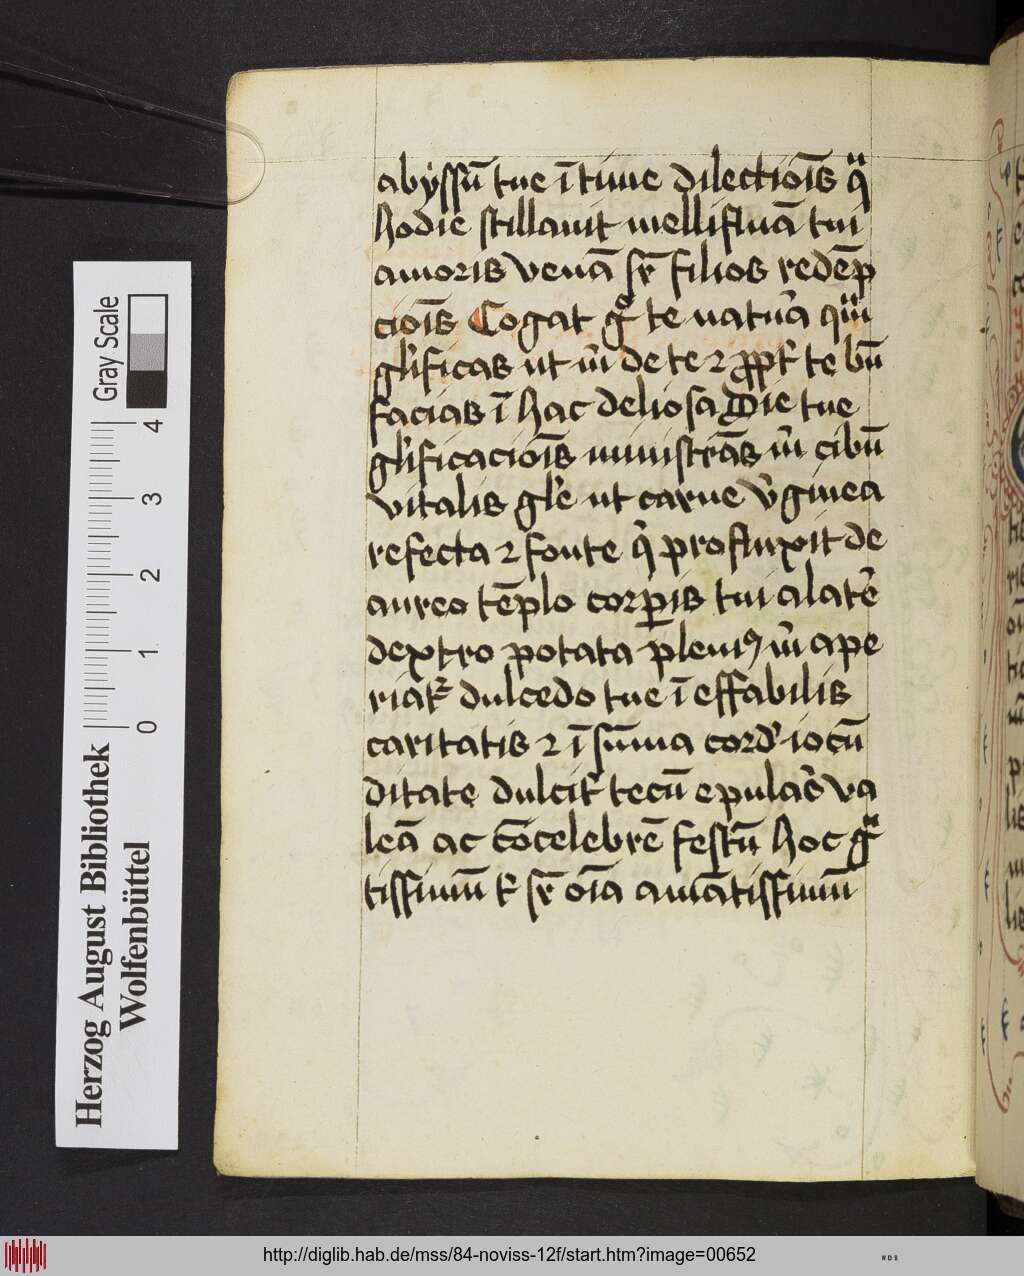 abÿssū tue ī timē dilectiōis qͣ
hodie stillauit mellifluā tui
amoris venā sr̄ filios redēp
ciōis Cogat gͦ te natur̄a
gl̓ificas ut m̄ de te ⁊ te bn̄
facias ī hac deliosa Die tue
gl̓ificaciōis ministrās m̄ cibū
vitalis gl̓e ut carne v̓ginea
refecta ⁊ fonte q̓ profluxit de
aureo tēplo corꝑis tui a lat̓e
dextro potata pleniꝰ m̄ ape
riat᷑ dulcedo tue ī effabilis
caritatis ⁊ ī sūma cord̓ iocū
ditate dulcit̓ tecū epular̓ va
leā ac cōcelebrē festū hoc gͣ
tissimū t᷑ sr̄ oīa amātissimū
Herzog August Bibliothek
Wolfenbüttel
Gray Scale
0 1 2 3 4
http://diglib.hab.de/mss/84-noviss-12f/start.htm?image=00652